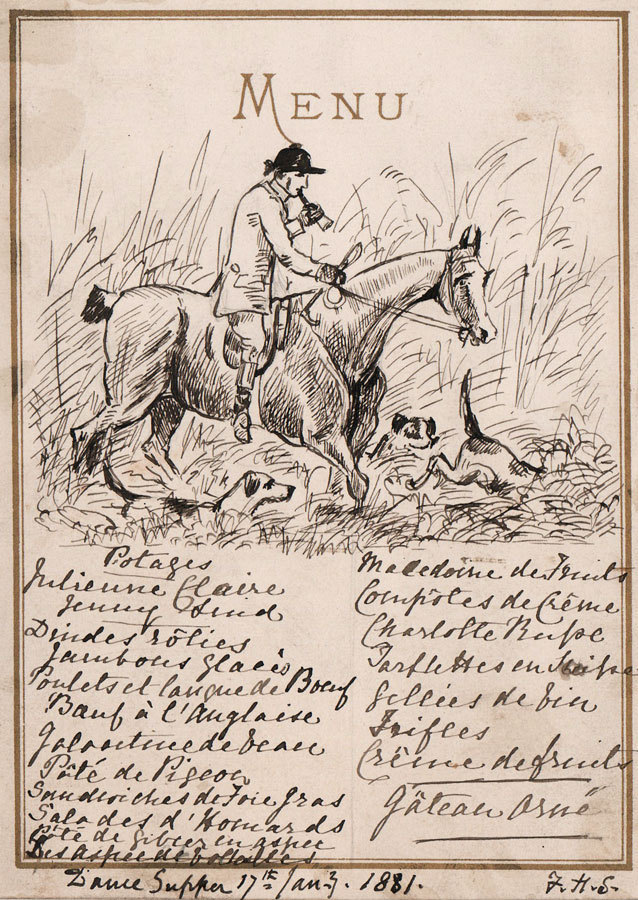 MENU
Potages
Julienne Claire
Jenny Lind
Dindes rôties
Jambons glacés
Poulets et langue de Bœuf
Bœuf à l'Anglaise
Galantine de veau
Pâté de Pigeon
Sandwiches de Foie Gras
Salades d'Homards
Pâté de Gibier en aspec
aspec de volailles
Macedoine de Fruits
Compôtes de Crême
Charlotte Russe
Tartlettes en Suisse
Gellées de vin
Trifles
Crême de fruits
Gâteau Orné
Dance Supper 17th Jany. 1881.
F.H.S.